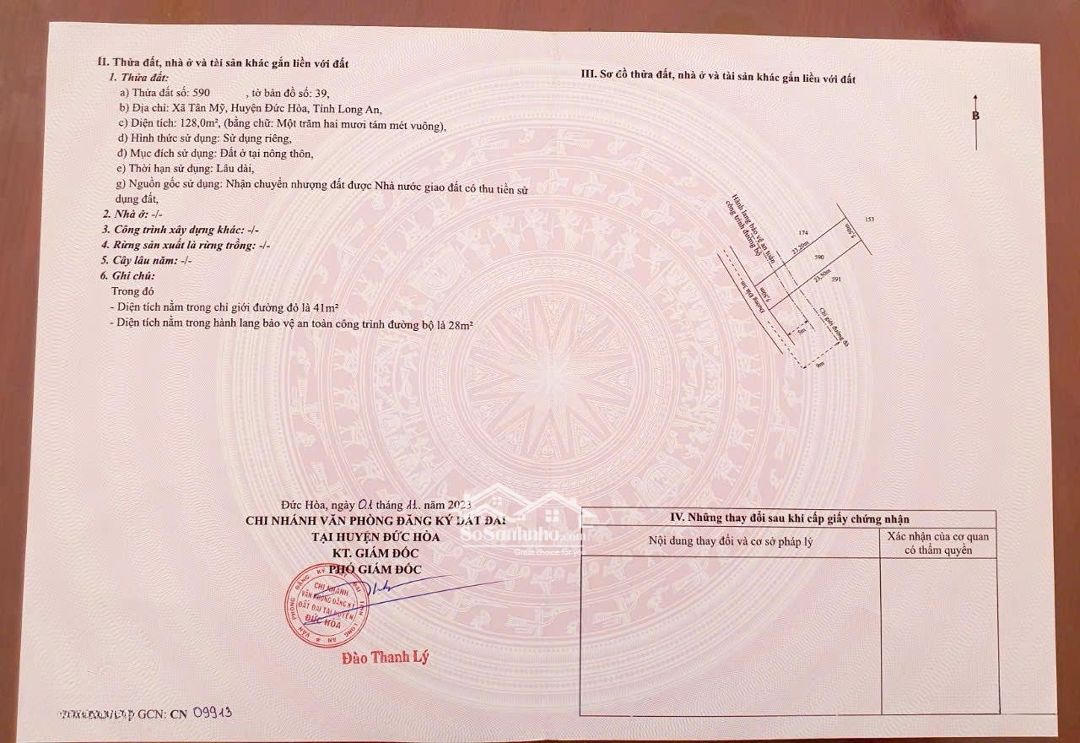 II. Thửa đất, nhà ở và tài sản khác gắn liền với đất
1. Thửa đất:
a) Thửa đất số: 590 , tờ bản đồ số: 39,
b) Địa chỉ: Xã Tân Mỹ, Huyện Đức Hòa, Tỉnh Long An,
c) Diện tích: 128,0m², (bằng chữ: Một trăm hai mươi tám mét vuông),
d) Hình thức sử dụng: Sử dụng riêng,
đ) Mục đích sử dụng: Đất ở tại nông thôn,
e) Thời hạn sử dụng: Lâu dài,
g) Nguồn gốc sử dụng: Nhận chuyển nhượng đất được Nhà nước giao đất có thu tiền sử
dụng đất,
2. Nhà ở: -/-
3. Công trình xây dựng khác: -/-
4. Rừng sản xuất là rừng trồng: -/-
5. Cây lâu năm: -/-
6. Ghi chú:
Trong đó
- Diện tích nằm trong chỉ giới đường đỏ là 41m²
- Diện tích nằm trong hành lang bảo vệ an toàn công trình đường bộ là 28m²
Đức Hòa, ngày 01 tháng 11 năm 2023
CHI NHÁNH VĂN PHÒNG ĐĂNG KÝ ĐẤT ĐAI
TẠI HUYỆN ĐỨC HÒA
KT. GIÁM ĐỐC
PHÓ GIÁM ĐỐC
CHI NHÁNH
VĂN PHÒNG ĐĂNG KÝ
ĐẤT ĐAI TẠI HUYỆN
ĐỨC HÒA
Đào Thanh Lý
GCN: CN 09913
III. Sơ đồ thửa đất, nhà ở và tài sản khác gắn liền với đất
B
Hành lang bảo vệ an toàn
công trình đường bộ
174
153
23,20m
5,50m
590
23,50m
591
5,50m
Chỉ giới đường đỏ
9m
SoSanhnha.com
IV. Những thay đổi sau khi cấp giấy chứng nhận
Nội dung thay đổi và cơ sở pháp lý
Xác nhận của cơ quan
có thẩm quyền